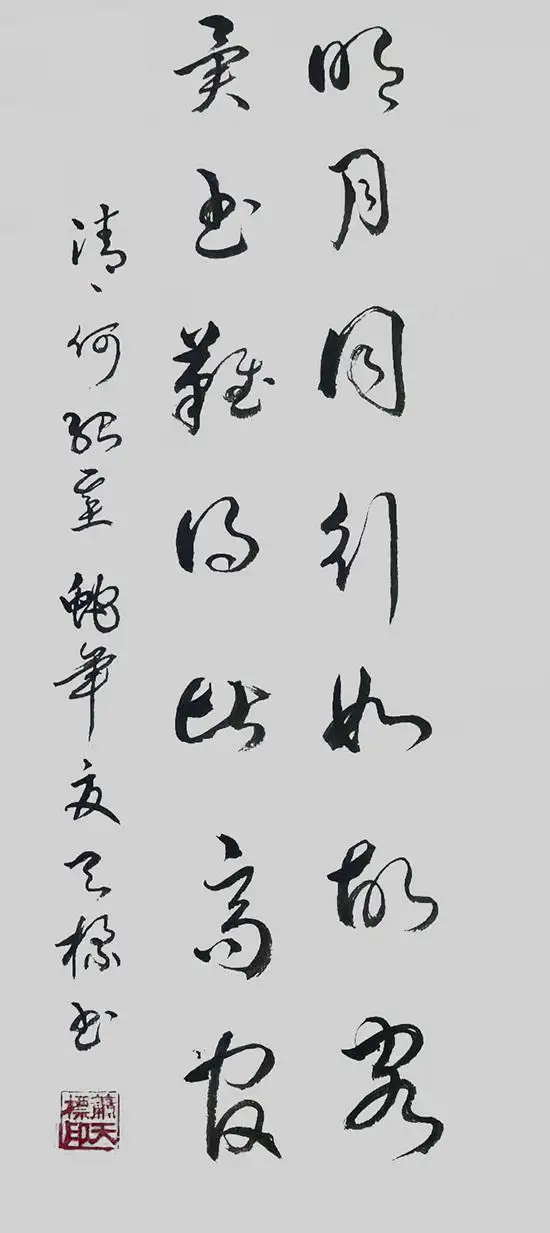 明月同行如故客
異書難得比高官
清、何紹基 年夏天標書
蕭天標印